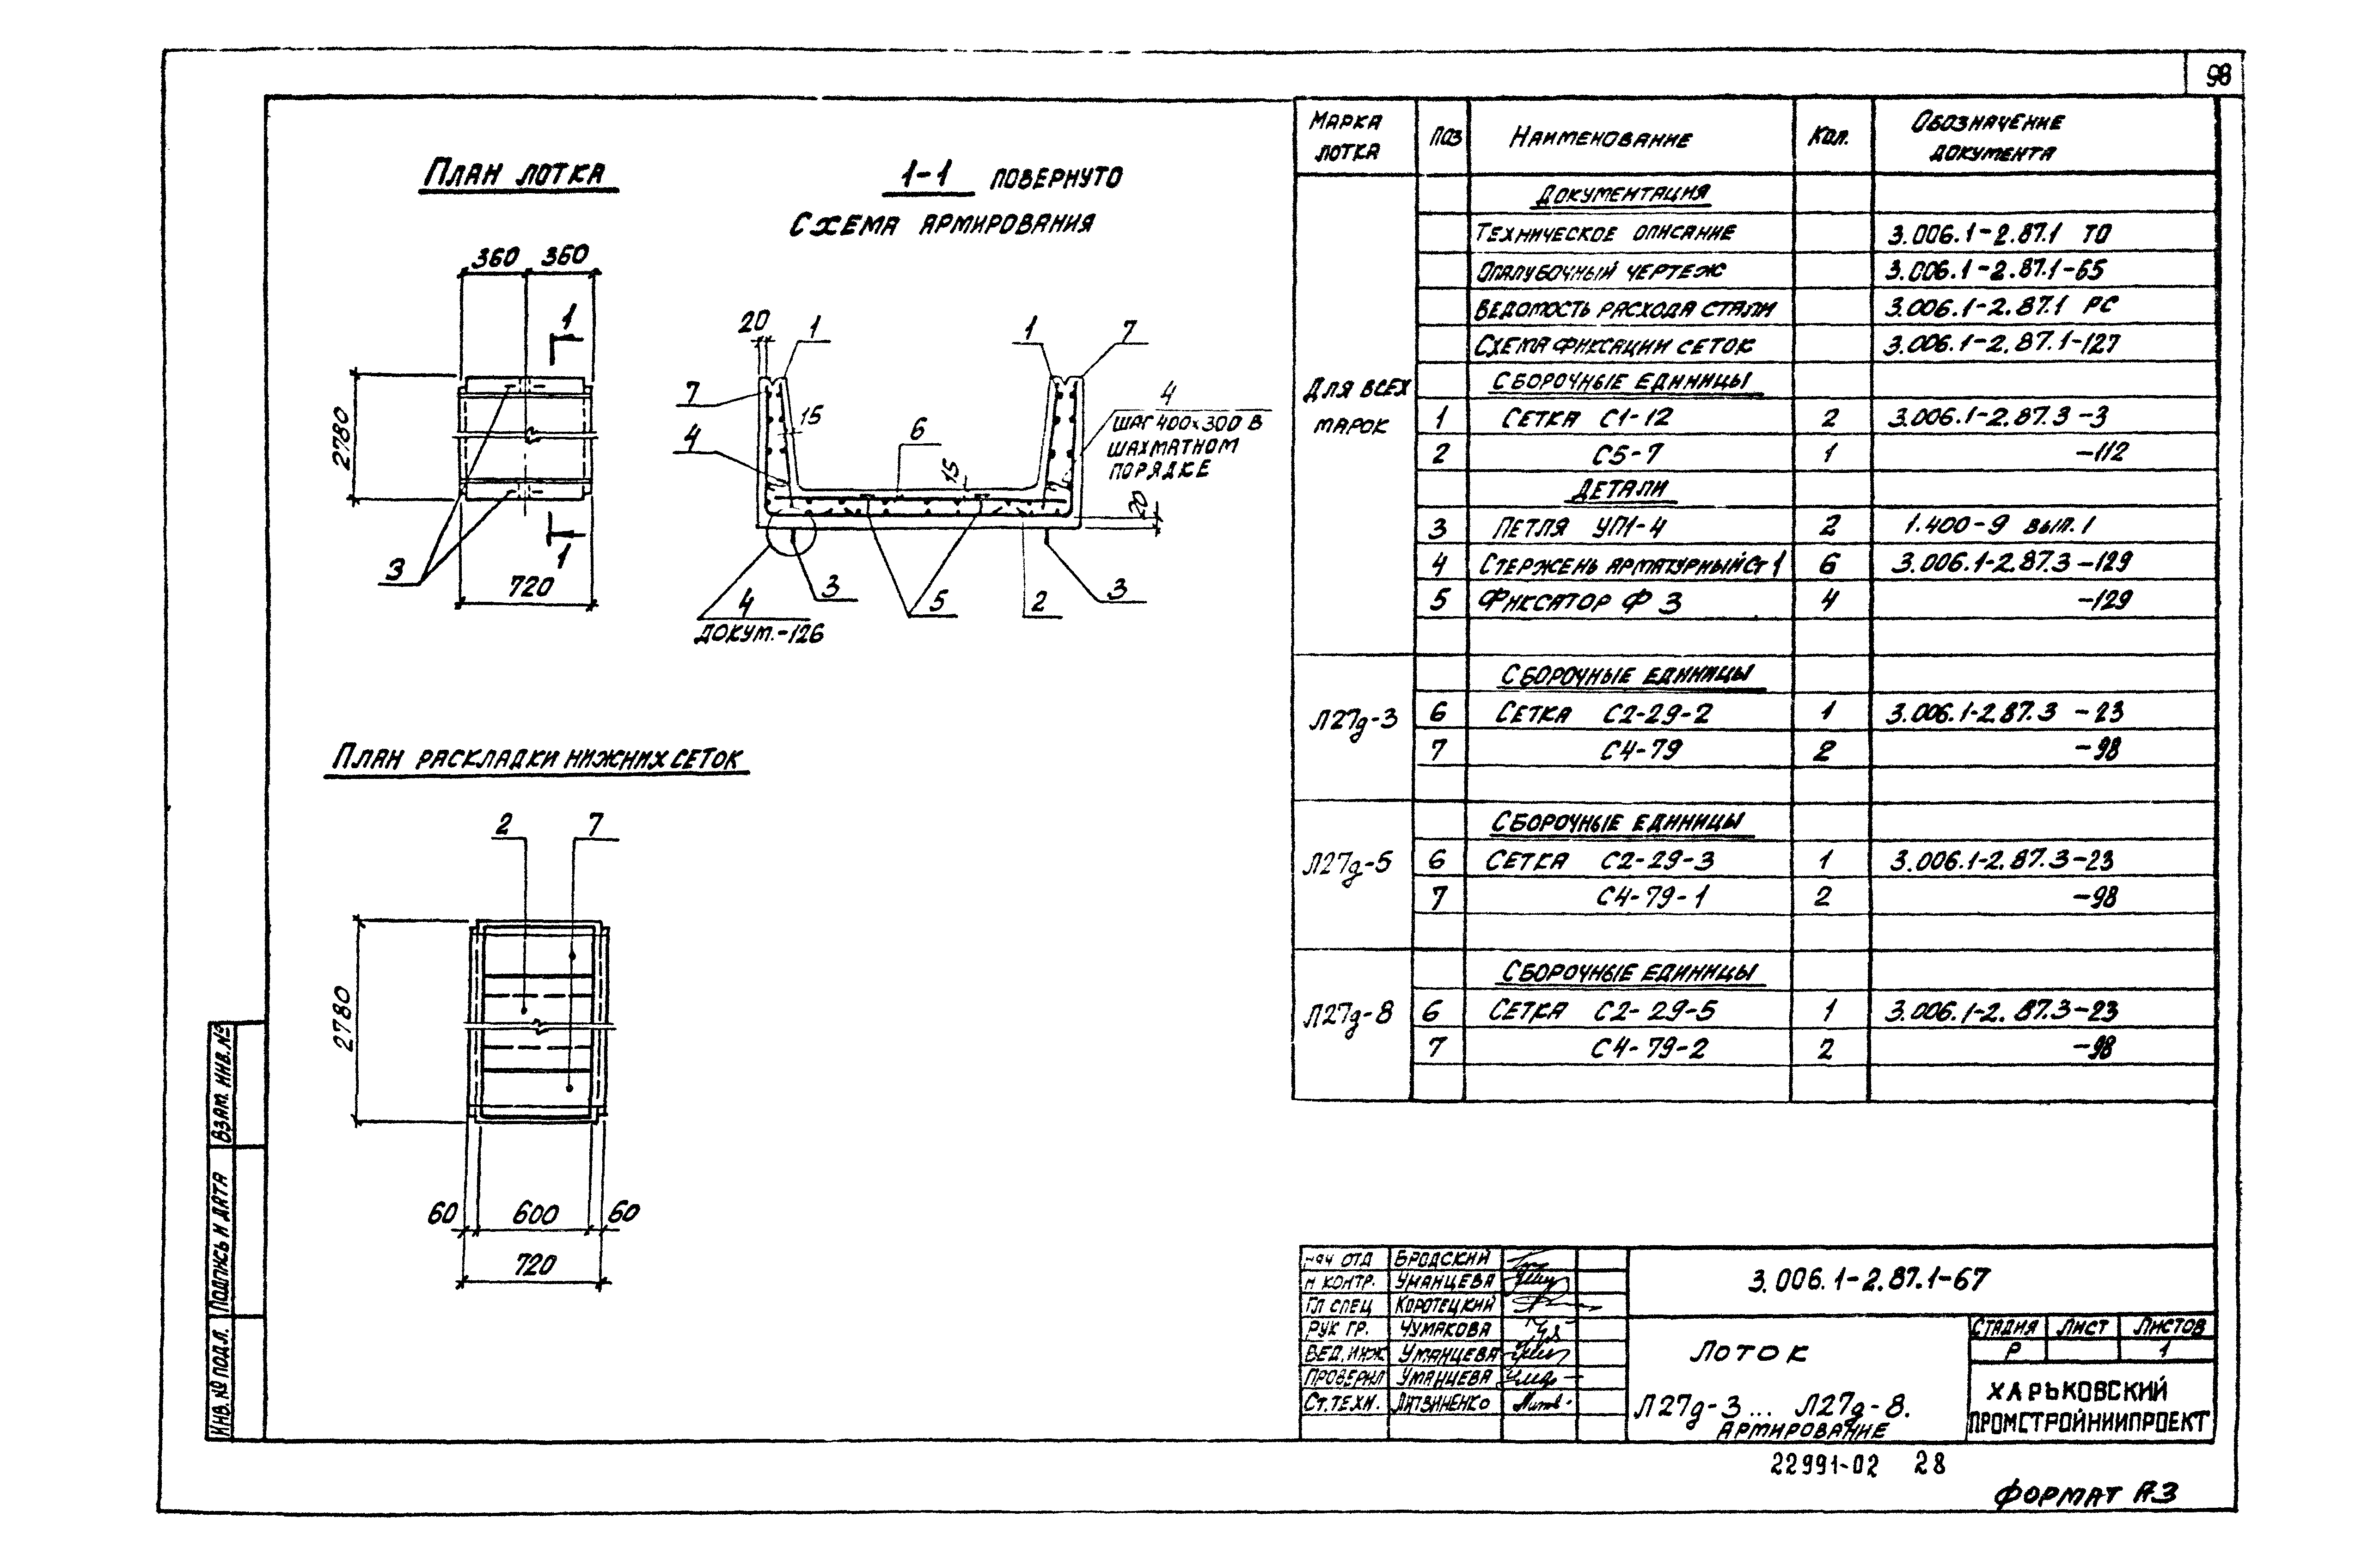 98
План лотка
360 360
1
2780
3
1
720
1-1 повернуто
Схема армирования
20 1 1 7
7 15 6 15 4
шаг 400×300 в
шахматном
порядке
4
20
4 3 5 2 3
докум.-126
План раскладки нижних сеток
2 7
2780
60 600 60
720
Марка лотка Поз Наименование Кол. Обозначение документа
Для всех марок
Документация
Техническое описание 3.006.1-2.87.1 ТО
Опалубочный чертеж 3.006.1-2.87.1-65
Ведомость расхода стали 3.006.1-2.87.1 РС
Схема фиксации сеток 3.006.1-2.87.1-127
Сборочные единицы
1 Сетка С1-12 2 3.006.1-2.87.3-3
2 С5-7 1 -112
Детали
3 Петля УП1-4 2 1.400-9 вып.1
4 Стержень арматурный Ст 1 6 3.006.1-2.87.3-129
5 Фиксатор Ф 3 4 -129
Сборочные единицы
Л27д-3 6 Сетка С2-29-2 1 3.006.1-2.87.3 -23
7 С4-79 2 -98
Сборочные единицы
Л27д-5 6 Сетка С2-29-3 1 3.006.1-2.87.3-23
7 С4-79-1 2 -98
Сборочные единицы
Л27д-8 6 Сетка С2-29-5 1 3.006.1-2.87.3-23
7 С4-79-2 2 -98
Нач отд Бродский
Н контр. Уманцева
Гл спец Коротецкий
Рук гр. Чумакова
Вед. инж Уманцева
Проверил Уманцева
Ст. техн. Литвиненко
3.006.1-2.87.1-67
Лоток
Л27д-3... Л27д-8.
Армирование
Стадия Лист Листов
Р 1
Харьковский
Промстройниипроект
22991-02 28
Формат А3
Взам. инв. №
Подпись и дата
Инв. № подл.